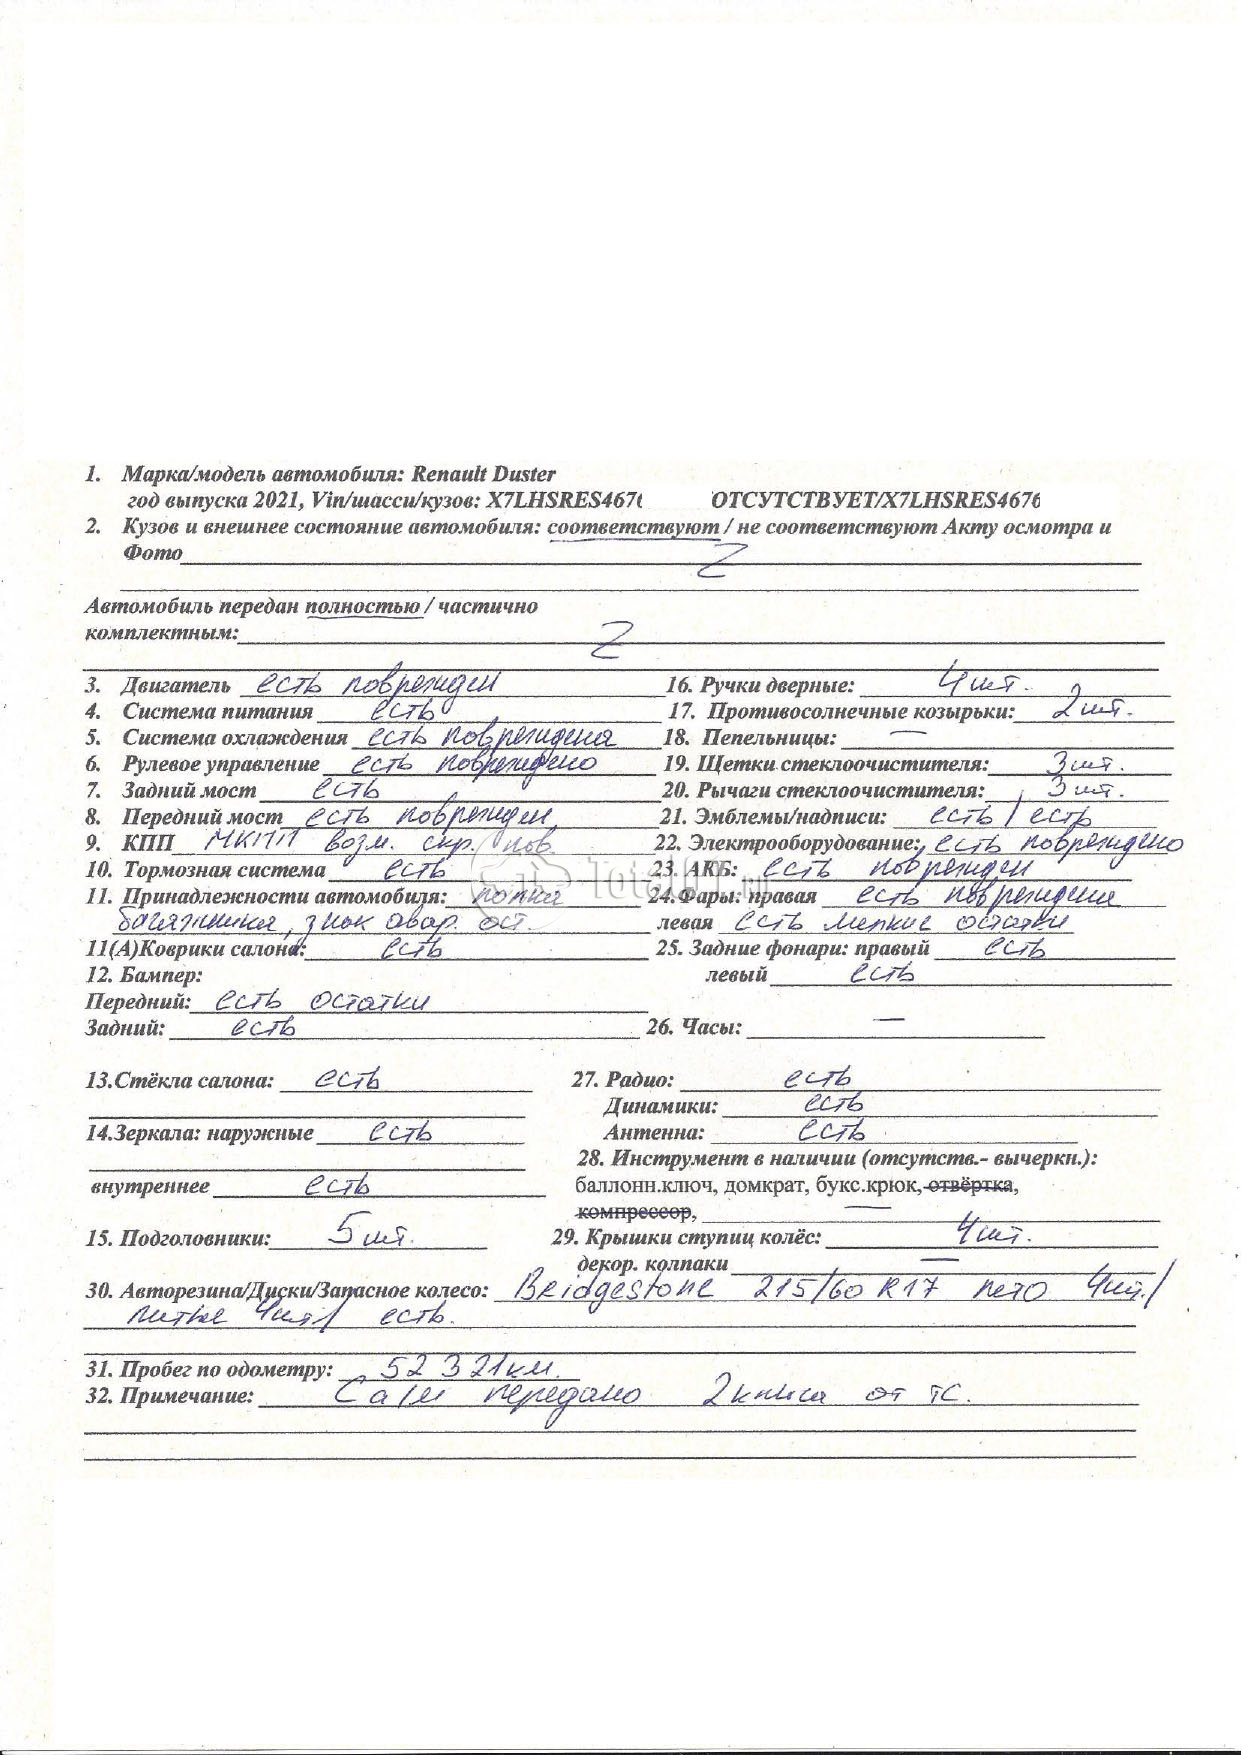 1. Марка/модель автомобиля: Renault Duster
год выпуска 2021, Vin/шасси/кузов: X7LHSRES4676 ОТСУТСТВУЕТ/X7LHSRES4676
2. Кузов и внешнее состояние автомобиля: соответствуют / не соответствуют Акту осмотра и
Фото Z
Автомобиль передан полностью / частично
комплектным: Z
3. Двигатель есть поврежден 16. Ручки дверные: 4 шт.
4. Система питания есть 17. Противосолнечные козырьки: 2 шт.
5. Система охлаждения есть повреждена 18. Пепельницы: —
6. Рулевое управление есть повреждено 19. Щетки стеклоочистителя: 3 шт.
7. Задний мост есть 20. Рычаги стеклоочистителя: 3 шт.
8. Передний мост есть поврежден 21. Эмблемы/надписи: есть / есть
9. КПП МКПП возм. скр. пов. 22. Электрооборудование: есть повреждено
10. Тормозная система есть 23. АКБ: есть поврежден
11. Принадлежности автомобиля: полка 24. Фары: правая есть повреждена
багажника, знак авар. ост. левая есть мелкие остатки
11(А)Коврики салона: есть 25. Задние фонари: правый есть
12. Бампер: левый есть
Передний: есть остатки
Задний: есть 26. Часы: —
13.Стёкла салона: есть 27. Радио: есть
Динамики: есть
14.Зеркала: наружные есть Антенна: есть
28. Инструмент в наличии (отсутств.- вычеркн.):
внутреннее есть баллонн.ключ, домкрат, букс.крюк, отвёртка,
компрессор, —
15. Подголовники: 5 шт. 29. Крышки ступиц колёс: 4 шт.
декор. колпаки —
30. Авторезина/Диски/Запасное колесо: Bridgestone 215/60 R17 лето 4шт./
литые 4шт/ есть.
31. Пробег по одометру: 52 321км.
32. Примечание: передано 2 ключа от ТС.